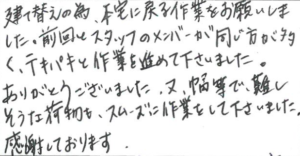 建て替えの為、本宅に戻る作業をお願いしま
した。前回とスタッフのメンバーが同じ方が多
く、テキパキと作業を進めて下さいました。
ありがとうございました。又、幅等で、難し
そうな荷物も、スムーズに作業をして下さいました。
感謝しております.